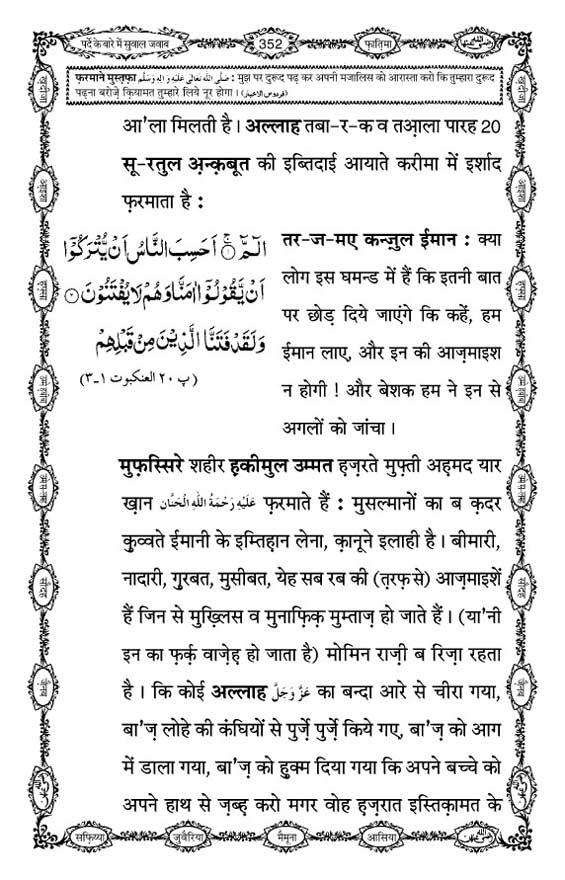 पर्दे के बारे में सुवाल जवाब
352
फ़ातिमा
फ़रमाने मुस्तफ़ा صَلَّى اللّٰهُ تَعَالٰى عَلَيْهِ وَاٰلِهٖ وَسَلَّم : मुझ पर दुरूद पढ़ कर अपनी मजालिस को आरास्ता करो कि तुम्हारा दुरूद
पढ़ना बरोज़े क़ियामत तुम्हारे लिये नूर होगा। (فردوس الاخبار)
आ'ला मिलती है। अल्लाह तबा-र-क व तआ़ला पारह 20
सू-रतुल अ़न्क़बूत की इब्तिदाई आयाते करीमा में इर्शाद
फ़रमाता है :
الٓمّٓ ۚ﴿۱﴾ اَحَسِبَ النَّاسُ اَنْ یُّتْرَكُوْۤا
اَنْ یَّقُوْلُوْۤا اٰمَنَّا وَ هُمْ لَا یُفْتَنُوْنَ ﴿۲﴾
وَ لَقَدْ فَتَنَّا الَّذِیْنَ مِنْ قَبْلِهِمْ
(پ ۲۰ العنکبوت ۱ـ۳)
तर-ज-मए कन्ज़ुल ईमान : क्या
लोग इस घमन्ड में हैं कि इतनी बात
पर छोड़ दिये जाएंगे कि कहें, हम
ईमान लाए, और इन की आज़माइश
न होगी ! और बेशक हम ने इन से
अगलों को जांचा।
मुफ़स्सिरे शहीर ह़कीमुल उम्मत ह़ज़रते मुफ़्ती अह़मद यार
ख़ान عَلَيْهِ رَحْمَةُ اللّٰهِ الْحَنَّان फ़रमाते हैं : मुसल्मानों का ब क़दर
क़ुव्वते ईमानी के इम्तिह़ान लेना, क़ानूने इलाही है। बीमारी,
नादारी, ग़ुरबत, मुसीबत, येह सब रब की (त़रफ़ से) आज़माइशें
हैं जिन से मुख़्लिस व मुनाफ़िक़ मुम्ताज़ हो जाते हैं। (या'नी
इन का फ़र्क़ वाज़ेह़ हो जाता है) मोमिन राज़ी ब रिज़ा रहता
है। कि कोई अल्लाह عَزَّ وَجَلَّ का बन्दा आरे से चीरा गया,
बा'ज़ लोहे की कंघियों से पुर्ज़े पुर्ज़े किये गए, बा'ज़ को आग
में डाला गया, बा'ज़ को हुक्म दिया गया कि अपने बच्चे को
अपने हाथ से ज़ब्ह़ करो मगर वोह ह़ज़रात इस्तिक़ामत के
सफ़िय्या
जुवैरिया
मैमूना
आसिया